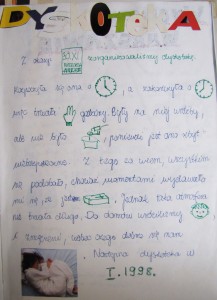 DYSKOTEKA
Z okazji 30 XI zorganizowaliśmy dyskotekę.
Rozpoczęła się ona o , a zakończyła o
więc trwała godziny. Były na niej wróżby,
ale nie było , ponieważ jest ona zbyt
niebezpieczna. Z tego co wiem, wszystkim
się podobało, chociaż momentami wydawało
mi się, że jest . Jednak taka atmosfera
nie trwała długo. Do domów wróciliśmy
i zmęczeni, wobec czego dobrze się nam
Następna dyskoteka w
I. 1998.